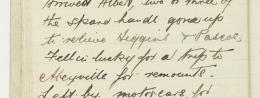 Albert, two or three of
the spare hands gone up
to relieve Higgins & Pascoe
Fell in lucky for a trip to
Abeyville for remounts.
Left by motorcars for